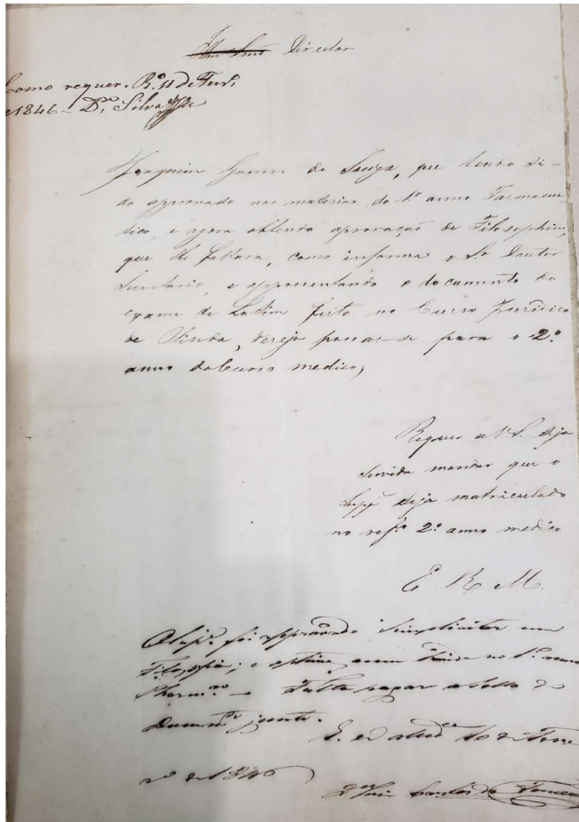 Illmo Snr Director
Como requer. Rº 11 de Fevrº
de 1846 - Dr Silva
Joaquim Gomes de Souza, que tendo si-
do approvado nas materias do 1º anno Farmaceu-
tico, e agora obtendo aprovação de Filosophia,
que lhe faltava, como informa o Sr Doutor
Secretario, e appresentando o documento do
exame de Latim feito no Curso Juridico
de Olinda, deseja passar-se para o 2º
anno do Curso medico;
Requer a V. S. seja
servido mandar que o
Suppe seja matriculado
no refº 2º anno medico
E R M.
O Suppe foi approvado simpliciter em
Filosofia; e no 1º anno
Pharmco - Falta pagar o sello do
Documto junto.
10 de Feve
rº de 1846
Dor Luiz Carlos da Fonseca